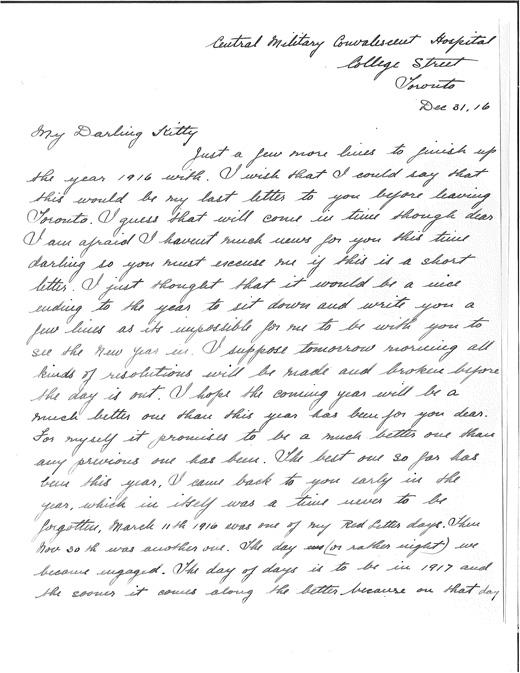 Central Military Convalescent Hospital
College Street
Toronto
Dec 31, 16
My Darling Kitty
Just a few more lines to finish up
the year 1916 with. I wish that I could say that
this would be my last letter to you before leaving
Toronto. I guess that will come in time though dear
I am afraid I havent much news for you this time
darling so you must excuse me if this is a short
letter. I just thought that it would be a nice
ending to the year to sit down and write you a
few lines as its impossible for me to be with you to
see the New Year in. I suppose tomorrow morning all
kinds of resolutions will be made and broken before
the day is out. I hope the coming year will be a
much better one than this year has been for you dear.
For myself it promises to be a much better one than
any previous one has been. The best one so far has
been this year, I came back to you early in the
year, which in itself was a time never to be
forgotten, March 11th 1916 was one of my Red Letter days. Then
Nov 30th was another one. The day (or rather night) we
became engaged. The day of days is to be in 1917 and
the sooner it comes along the better because on that day